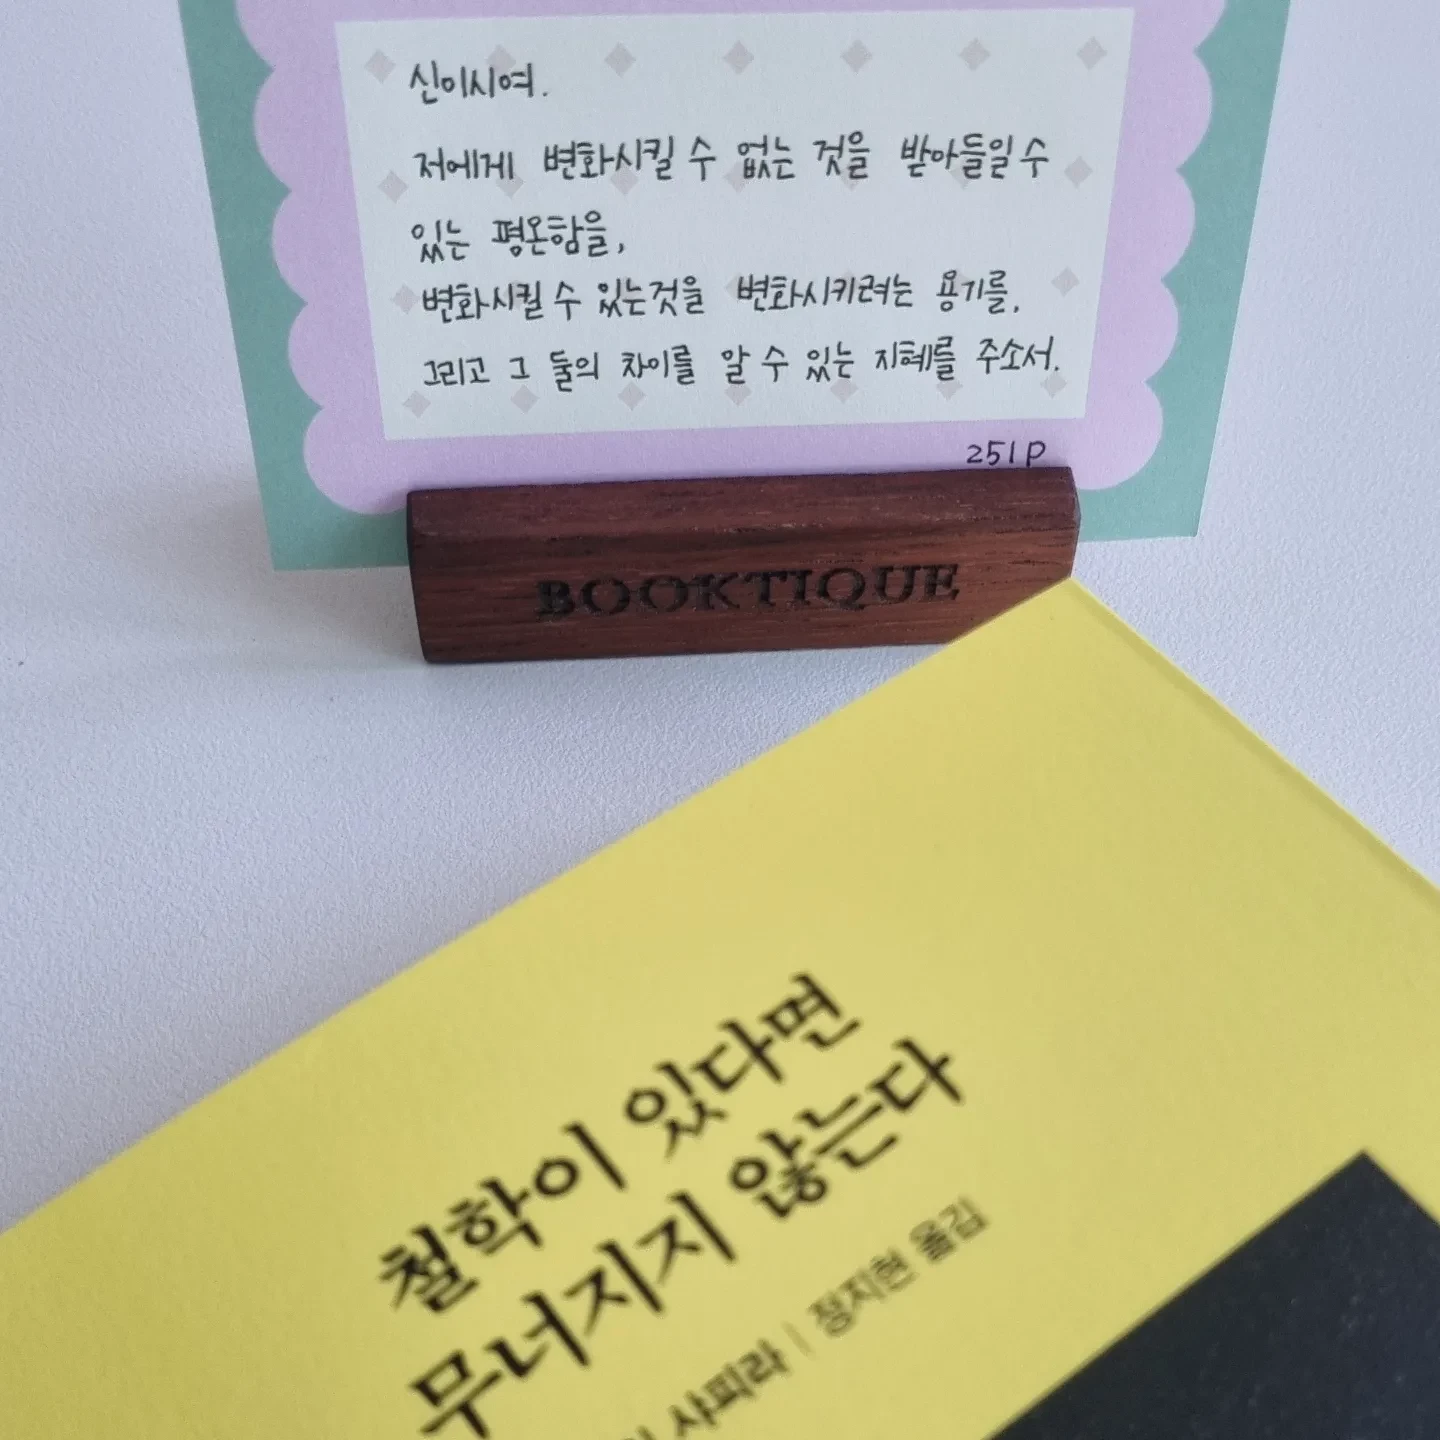 신이시여.
저에게 변화시킬 수 없는 것을 받아들일 수
있는 평온함을,
변화시킬 수 있는것을 변화시키려는 용기를,
그리고 그 둘의 차이를 알 수 있는 지혜를 주소서.
251P
BOOKTIQUE
철학이 있다면
무너지지 않는다
샤피라 | 정지현 옮김